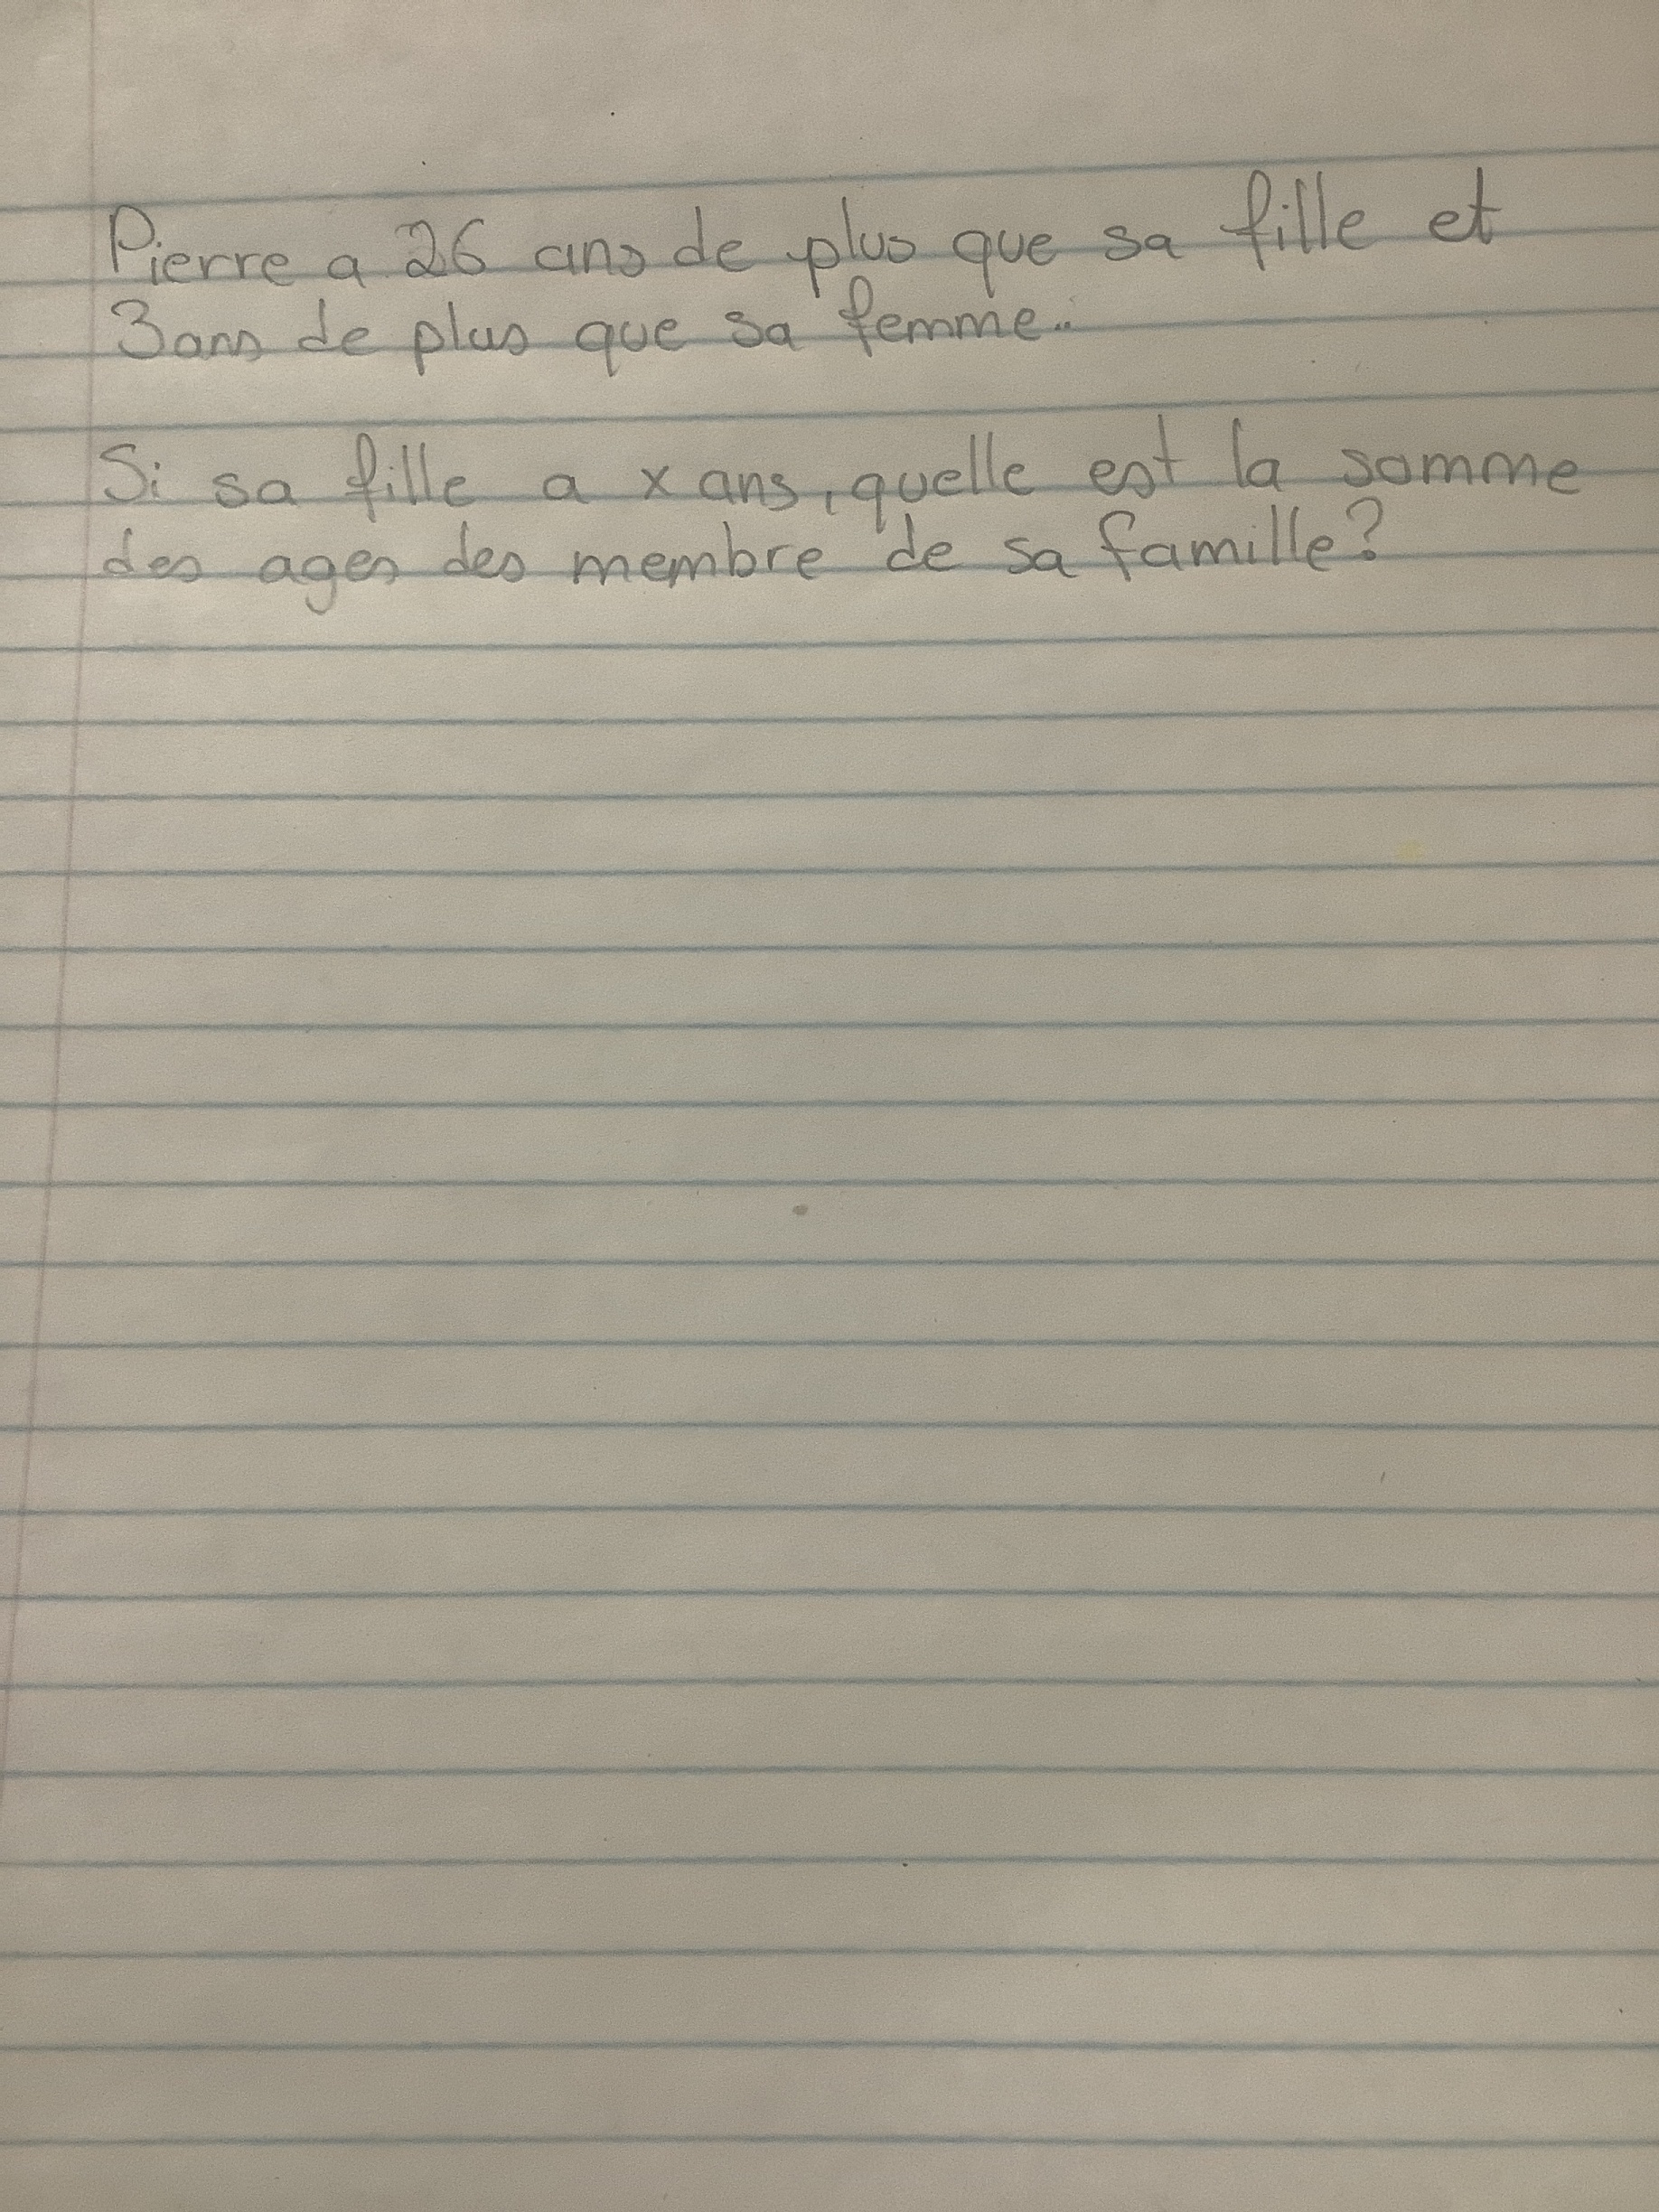 Pierre a 26 ans de plus que sa fille et
3ans de plus que sa femme..
Si sa fille a x ans, quelle est la somme
des ages des membre de sa famille?